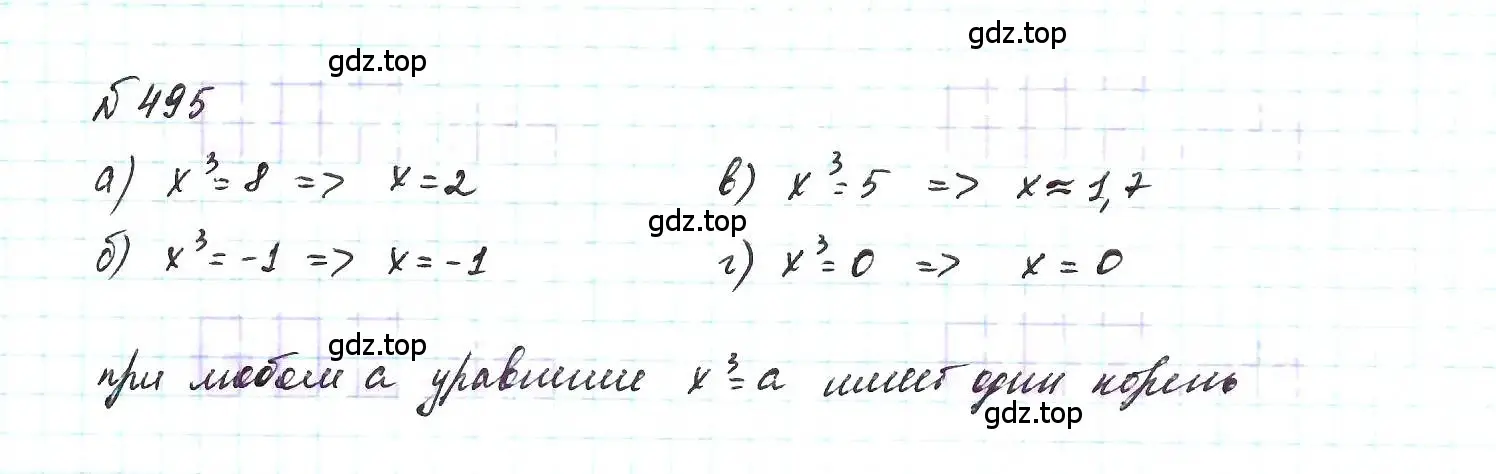 gdz.top
gdz.top
№ 495
а) x³ = 8 => x = 2
в) x³ = 5 => x ≈ 1,7
gdz.top
б) x³ = -1 => x = -1
г) x³ = 0 => x = 0
gdz.top
при любом a уравнение x³ = a имеет один корень
gdz.top